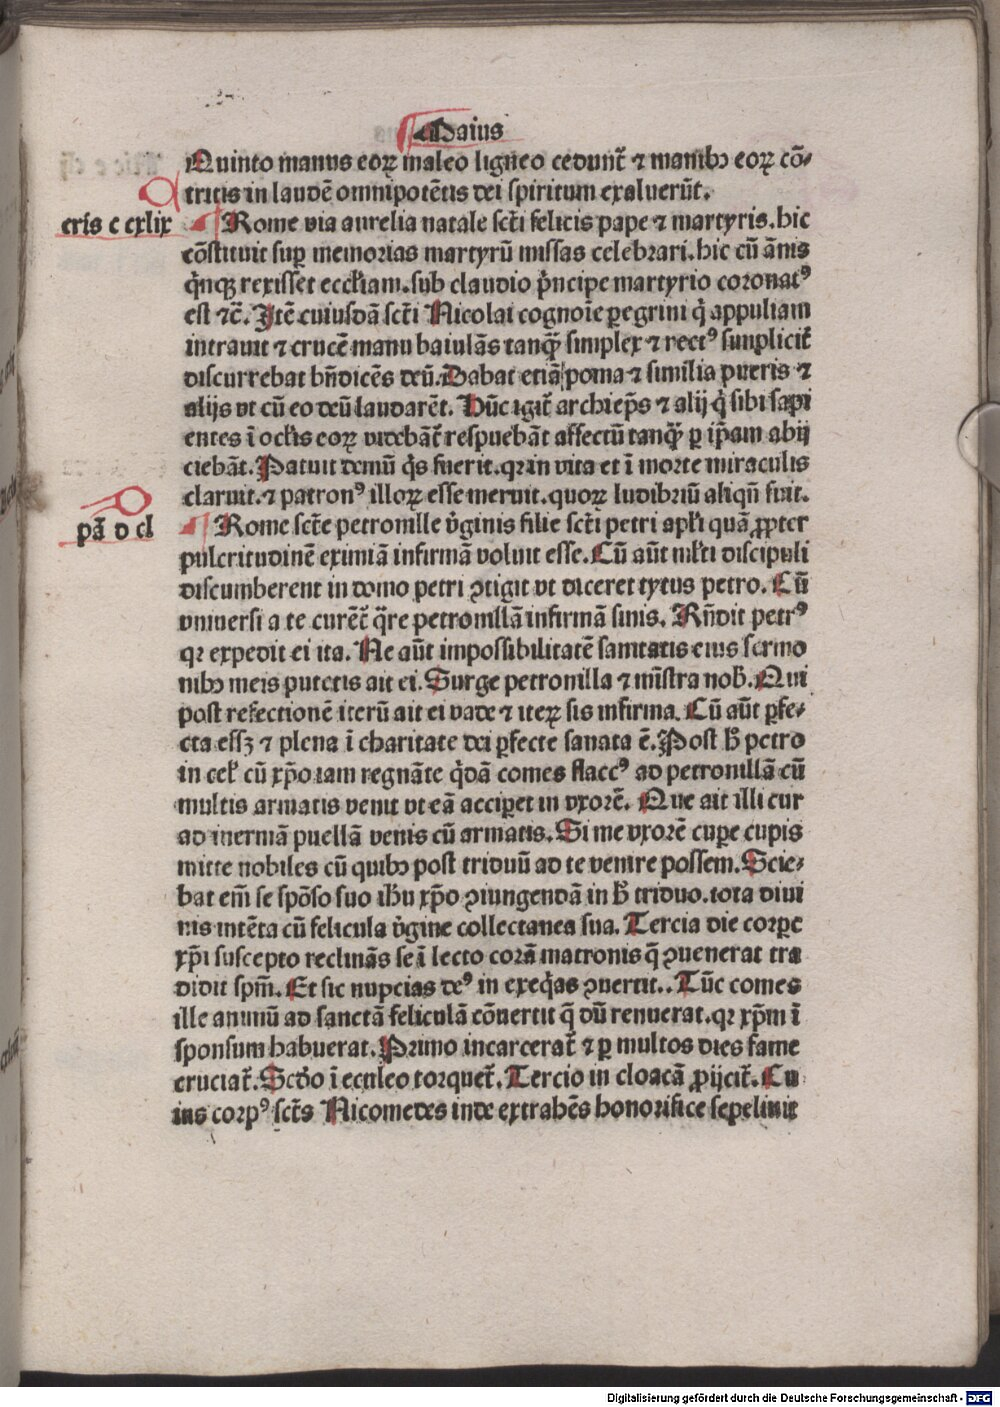 Maius
Quinto manus eoꝝ maleo ligneo cedunt̃ ⁊ manibꝰ eoꝝ cō⸗
tritis in laudē omnipotētis dei spiritum exaluerūt.
cris c cxlix
Rome via aurelia natale sct̃i felicis pape ⁊ martyris. hic
cōstituit suꝑ memorias martyrū missas celebrari. hic cū ānis
q̃nqꝫ rexisset eccl̃iam. sub claudio p̃ncipe martyrio coronatꝰ
est ⁊c̃. Itē cuiusdā sct̃i Nicolai cognoīe peregrini q̇ appuliam
intrauit ⁊ crucē manu baiulās tanqȝ̃ simplex ⁊ rectꝰ simplicit̃
discurrebat bñdicēs deū. Dabat etiā poma ⁊ similia pueris ⁊
alijs vt cū eo deū laudarēt. Hūc igit̃ archiep̃s ⁊ alij q̇ sibi sapi
entes ī ocl̃is eoꝝ videbāt̃ respuebāt affectū tanqȝ̃ ꝑ ip̃am abij
ciebāt. Patuit demū q̇s fuerit. qꝛ in vita et ī morte miraculis
claruit. ⁊ patronꝰ illoꝝ esse meruit. quoꝝ ludibriū aliqñ fuit.
pā d cl
Rome sct̃e petronille v̓ginis filie sct̃i petri apl̃i quā ꝓpter
pulcritudinē eximiā infirmā voluit esse. Cū aūt ml̃ti discipuli
discumberent in domo petri ↄtigit vt diceret tytus petro. Cū
vniuersi a te curēt̃ q̃re petronillā infirmā sinis. Rñdit petrꝰ
qꝛ expedit ei ita. Ne aūt impossibilitatē sanitatis eius sermo
nibꝰ meis putetis ait ei. Surge petronilla ⁊ mĩstra nob̃. Qui
post refectionē iterū ait ei vade ⁊ iteꝝ sis infirma. Cū aūt ꝑfe⸗
cta essꝫ ⁊ plena ī charitate dei ꝑfecte sanata ē. Post h̃ petro
in cel̃ cū xp̃o iam regnāte q̇dā comes flaccꝰ ad petronillā cū
multis armatis venit vt eā acciꝑet in vxorē. Que ait illi cur
ad inermā puellā venis cū armatis. Si me vxorē cuꝑe cupis
mitte nobiles cū quibꝰ post triduū ad te venire possem. Scie⸗
bat em̃ se spōso suo ih̃u xp̃o ↄiungendā in h̃ triduo. tota diui
nis intēta cū felicula v̓gine collectanea sua. Tercia die corꝑe
xp̃i suscepto reclinās se ī lecto corā matronis q̃ ↄuenerat tra
didit sp̃m. Et sic nupcias deꝰ in exeq̇as ↄuertit.. Tūc comes
ille animū ad sanctā feliculā cōuertit q̃ dū renuerat. qꝛ xp̃m ī
sponsum habuerat. Primo incarcerat̃ ⁊ ꝑ multos dies fame
cruciat̃. Scd̃o ī eculeo torquet̃. Tercio in cloacā ꝓijcit̃. Cu
ius corpꝰ sct̃s Nicomedes inde extrahēs honorifice sepeliuit
Digitalisierung gefördert durch die Deutsche Forschungsgemeinschaft - DFG